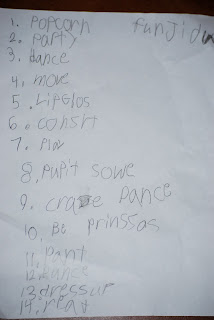 1. popcorn
funjidu
2. party
3. dance
4. move
5. LipGlos
6. consrt
7. Play
8. pupit sowe
9. craze Dance
10. Be prinssas
11. Pant
12. dance
13 dressup
14. reat